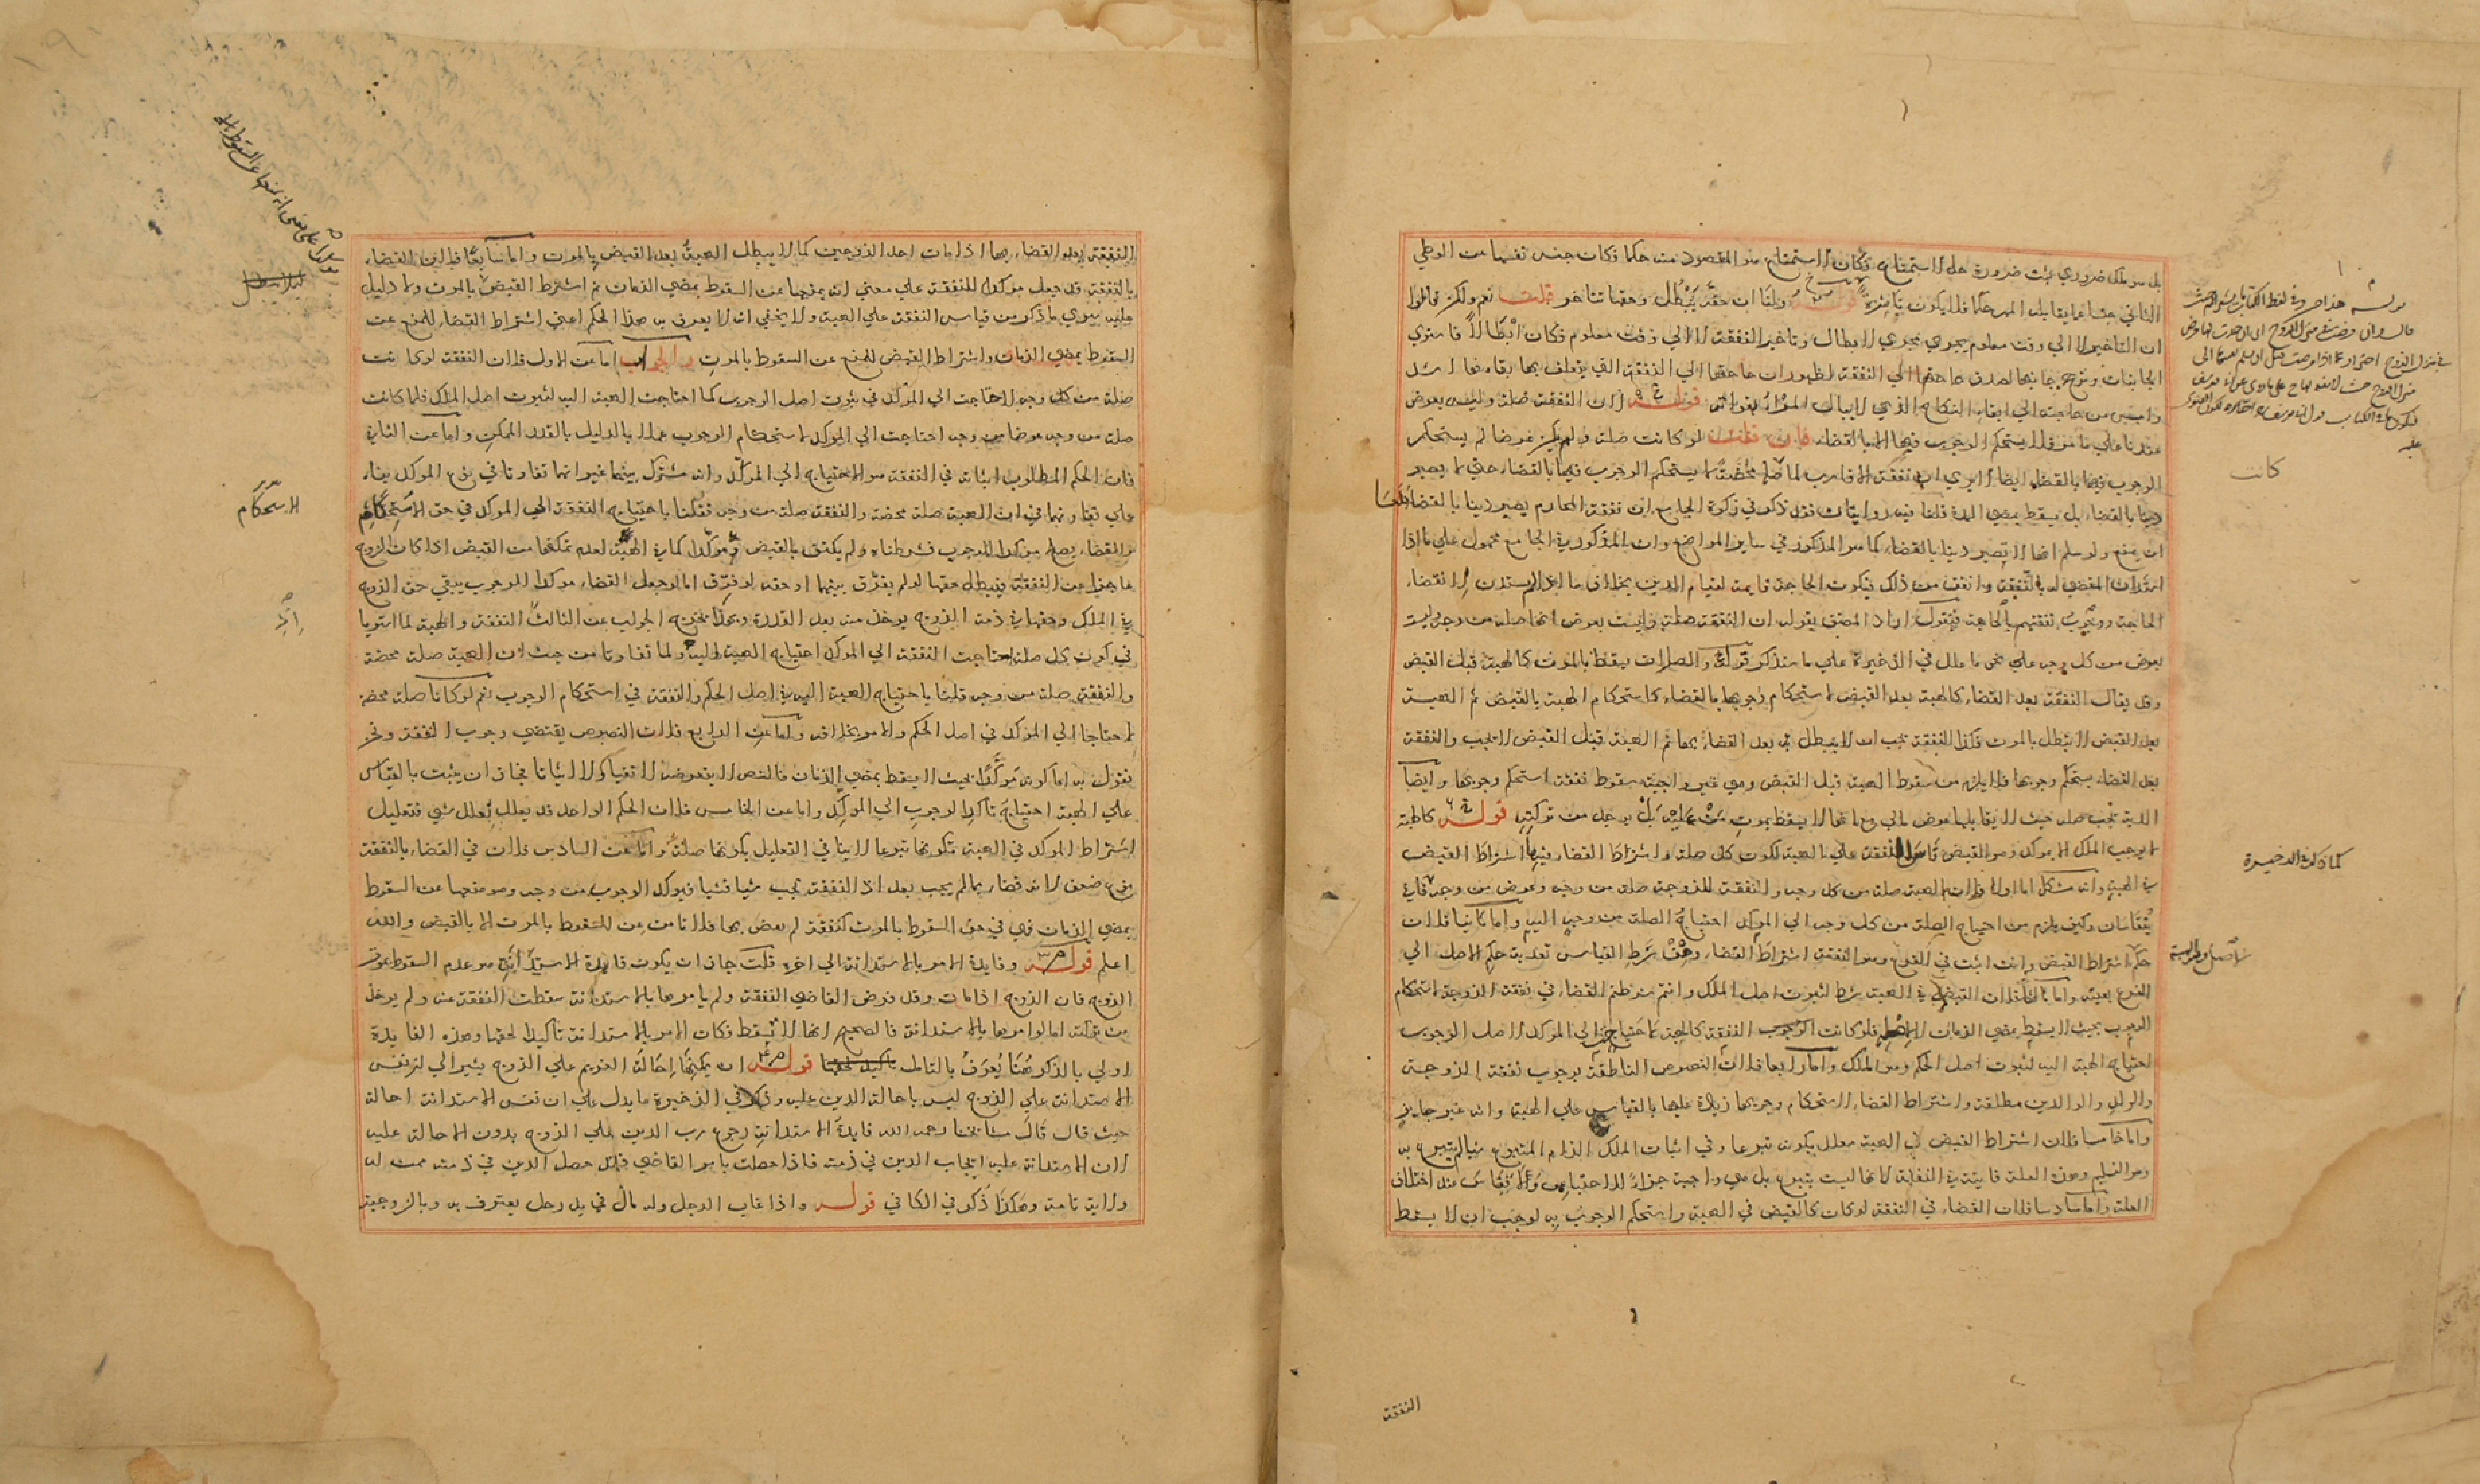 بل هو ملك ضروري يثبت ضرورة حل الاستمتاع فكان الاستمتاع هو المقصود منه حكما فكان حبس نفسها من الوطي
الثاني حبسا فيما يقابل المهر حكما فلا يكون ناشزة قوله قلنا ان حقه يبطل وحقها يتاخر قلت نعم ولكن قالوا
ان التاخير لا الي وقت معلوم يجري مجري الابطال وتاخير النفقة لا الي وقت معلوم فكان ابطالا فاستوي
الجانبان وترجح جانبها لصدق حاجتها الي النفقة
وامس من حاجته الي ابقاء النكاح قوله لان النفقة صلة وليس بعوض
عندنا علي ما مر فلا يستحكم الوجوب فيها الا بالقضاء فان قلت لو كانت صلة ولم يكن عوضا لم يستحكم
الوجوب فيها بالقضاء ايضا الا يري ان نفقة الاقارب لما كانت صلة محضة لا يستحكم الوجوب فيها بالقضاء حتي لا يصير
دينا بالقضاء بل يسقط بمضي المدة قلنا فيه روايتان فقد ذكر في زكوة الجامع ان نفقة المحارم يصير دينا بالقضاء
ان يمنع ولو سلم انها لا تصير دينا بالقضاء كما هو المذكور في ساير المواضع وان المذكور في الجامع محمول علي ما اذا
استدان المقضي له بالنفقة وانفق من ذلك فيكون الحاجة قايمة لقيام الدين بخلاف ما اذا لم يستدن لانقضاء
الحاجة ووجوب نفقتهم بالحاجة فنقول اراد المصنف بقوله ان النفقة صلة وليست بعوض انها صلة من وجه وليست
بعوض من كل وجه علي نحو ما علل في الذخيرة علي ما سنذكر قوله والصلات يسقط بالموت كالهبة قبل القبض
وقد يقال النفقة بعد القضاء كالهبة بعد القبض لاستحكام وجوبها بالقضاء كاستحكام الهبة بالقبض ثم الهبة
بعد القبض لا يبطل بالموت فكذا النفقة يجب ان لا يبطل به بعد القضاء بها ثم الهبة قبل القبض لا يجب والنفقة
بعد القضاء يستحكم وجوبها فلا يلزم من سقوط الهبة قبل القبض وهي غير واجبة سقوط نفقة استحكم وجوبها وايضا
الدية تجب صلة حيث لا يقابلها عوض مالي مع انها لا يسقط بموت من عليه بل يوخذ من تركته قوله كالهبة
لا يوجب الملك الا بموكد وهو القبض قاس النفقة علي الهبة لكون كل صلة واشتراط القضاء فيها اشتراط القبض
في الهبة وانه مشكل اما اولا فلان الهبة صلة من كل وجه والنفقة للزوجة صلة من وجه وعوض من وجه فاني
يتقاسان وكيف يلزم من احتياج الصلة من كل وجه الي الموكد احتياج الصلة من وجه اليه واما ثانيا فلان
حكم اشتراط القبض وانت اثبت في الفرع وهو النفقة اشتراط القضاء ومن شرط القياس تعدية حكم الاصل الي
الفرع بعينه واما ثالثا فلان القبض في الهبة شرط لثبوت اصل الملك وانتم شرطتم القضاء في نفقة الزوجة لاستحكام
الوجوب بحيث لا يسقط بمضي الزمان لا لاصله فلو كانت النفقة كالهبة لاحتاج الي الموكد لاصل الوجوب
احتياج الهبة اليه لثبوت اصل الحكم وهو الملك واما رابعا فلان النصوص الناطقة بوجوب نفقة الزوجة
والولد والوالدين مطلقة واشتراط القضاء لاستحكام وجوبها زيادة عليها بالقياس علي الهبة وانه غير جايز
واما خامسا فلان اشتراط القبض في الهبة معلل بكونه تبرعا وفي اثبات الملك الزام المتبرع شيا لم يتبرع به
وهو التسليم وهذه العلة فايتة في النفقة لانها ليست بتبرع بل هي واجبة جزاء للاحتباس ولا قياس عند اختلاف
العلة واما سادسا فلان القضاء في النفقة لو كان كالقبض في الهبة واستحكم الوجوب به لوجب ان لا يسقط
كانت
كما ذكر في الذخيرة
النفقة
النفقة بعد القضاء بها اذا مات احد الزوجين كما لا يبطل الهبة بعد القبض بالموت واما سابعا فلان القضاء
بالنفقة قد جعل موكدا للنفقة علي معني انه يمنعها عن السقوط بمضي الزمان ثم اشترط القبض بالموت ولا دليل
عليه سوي ما ذكر من قياس النفقة علي الهبة ولا يخفي انه لا يعرف به هذا الحكم اعني اشتراط القضاء للمنع عن
السقوط بمضي الزمان واشتراط القبض للمنع عن السقوط بالموت والجواب اما عن الاول فلان النفقة لو كانت
صلة من كل وجه لاحتاجت الي الموكد في ثبوت اصل الوجوب كما احتاجت الهبة اليه لثبوت اصل الملك فلما كانت
صلة من وجه عوضا من وجه احتاجت الي الموكد لاستحكام الوجوب عملا بالدليل بالقدر الممكن واما عن الثاني
فان الحكم المطلوب اثباته في النفقة هو الاحتياج الي الموكد وانه مشترك بينهما غير انهما تفاوتا في نوع الموكد بناء
علي تفاوتهما في ان الهبة صلة محضة والنفقة صلة من وجه فقلنا باحتياج النفقة الي الموكد في حق الاستحكام
والقضاء يصلح موكدا للوجوب فشرطناه ولم يكتف بالقبض موكدا كما في الهبة لعدم تمكنها من القبض اذا كان الزوج
عاجزا عن النفقة فيبطل حقها لو لم يفرق بينهما او حقه لو فرق اما لو جعل القضاء موكدا للوجوب يبقي حق الزوج
في الملك وحقها في ذمة الزوج يوخذ منه بعد القدرة وبهذا يخرج الجواب عن الثالث النفقة والهبة لما استويا
في كون كل صلة احتاجت النفقة الي الموكد احتياج الهبة اليه ولما تفاوتا من حيث ان الهبة صلة محضة
والنفقة صلة من وجه قلنا باحتياج الهبة اليه في اصل الحكم والنفقة في استحكام الوجوب نعم لو كانتا صلة محضة
لاحتاجا الي الموكد في اصل الحكم والامر بخلافه واما عن الرابع فلان النصوص يقتضي وجوب النفقة ونحن
نقول به اما كونه موكدا بحيث لا يسقط بمضي الزمان فالنص لا يتعرضه لا نفيا ولا اثباتا فجاز ان يثبت بالقياس
علي الهبة احتياج تاكد الوجوب الي الموكد واما عن الخامس فلان الحكم الواحد قد يعلل بعلل شتي فتعليل
اشتراط الموكد في الهبة بكونها تبرعا لا ينافي التعليل بكونها صلة واما عن السادس فلان في القضاء بالنفقة
نوع ضعف لانه قضاء بما لم يجب بعد اذ النفقة تجب شيا فشيا فيوكد الوجوب من وجه وهو منعها عن السقوط
بمضي الزمان فهي في حق السقوط بالموت كنفقة لم يقض بها فلا تامن عن السقوط بالموت الا بالقبض والله
اعلم قوله وفايدة الامر بالاستدانة الي اخره قلت جاز ان يكون فايدة الاستدانة هو عدم السقوط بموت
الزوج فان الزوج اذا مات وقد فرض القاضي النفقة ولم يامرها بالاستدانة سقطت النفقة عنه ولم يوخذ
من تركته اما لو امرها بالاستدانة فالصحيح انها لا تسقط فكان الامر بالاستدانة تاكيدا لحقها وهذه الفايدة
اولي بالذكر هنا يعرف بالتامل قوله ان يمكنها احالة الغريم علي الزوج يشير الي ان نفس
الاستدانة علي الزوج ليس باحالة الدين عليه وذكر في الذخيرة ما يدل علي ان نفس الاستدانة احالة
حيث قال قال مشايخنا رحمه الله فايدة الاستدانة رجوع رب الدين علي الزوج بدون الاحالة عليه
لان الاستدانة عليه ايجاب الدين في ذمته فاذا حصلت بامر القاضي فقد حصل الدين في ذمته ممن له
ولاية تامة وهكذا ذكر في الكافي قوله واذا غاب الرجل وله مال في يد رجل يعترف به وبالزوجية
الاستحكام